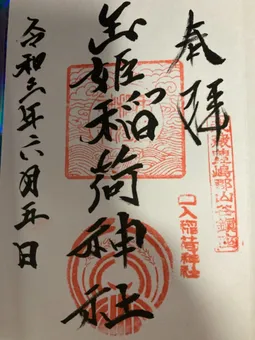 奉拝
玉姫稲荷神社
口入稲荷神社
令和三年六月五日